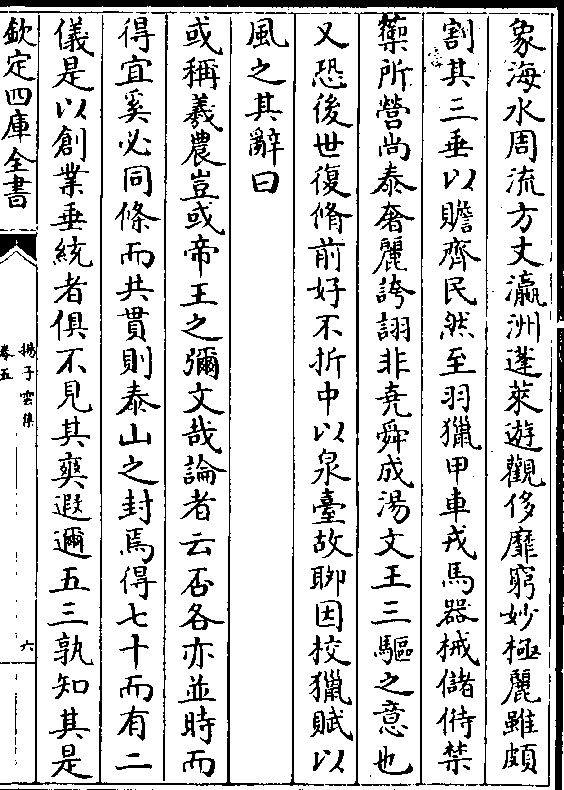 象海水周流方丈瀛洲蓬萊遊觀侈靡窮妙極麗雖頗
割其三垂以贍齊民然至羽獵甲車戎馬器械儲偫禁
籞所營尚泰奢麗誇詡非堯舜成湯文王三驅之意也
又恐後世復脩前好不折中以泉臺故聊因校獵賦以
風之其辭曰
或稱羲農豈或帝王之彌文哉論者云否各亦並時而
得宜奚必同條而共貫則泰山之封焉得七十而有二
儀是以創業垂統者俱不見其爽遐邇五三孰知其是
欽定四庫全書
揚子雲集
卷五
六